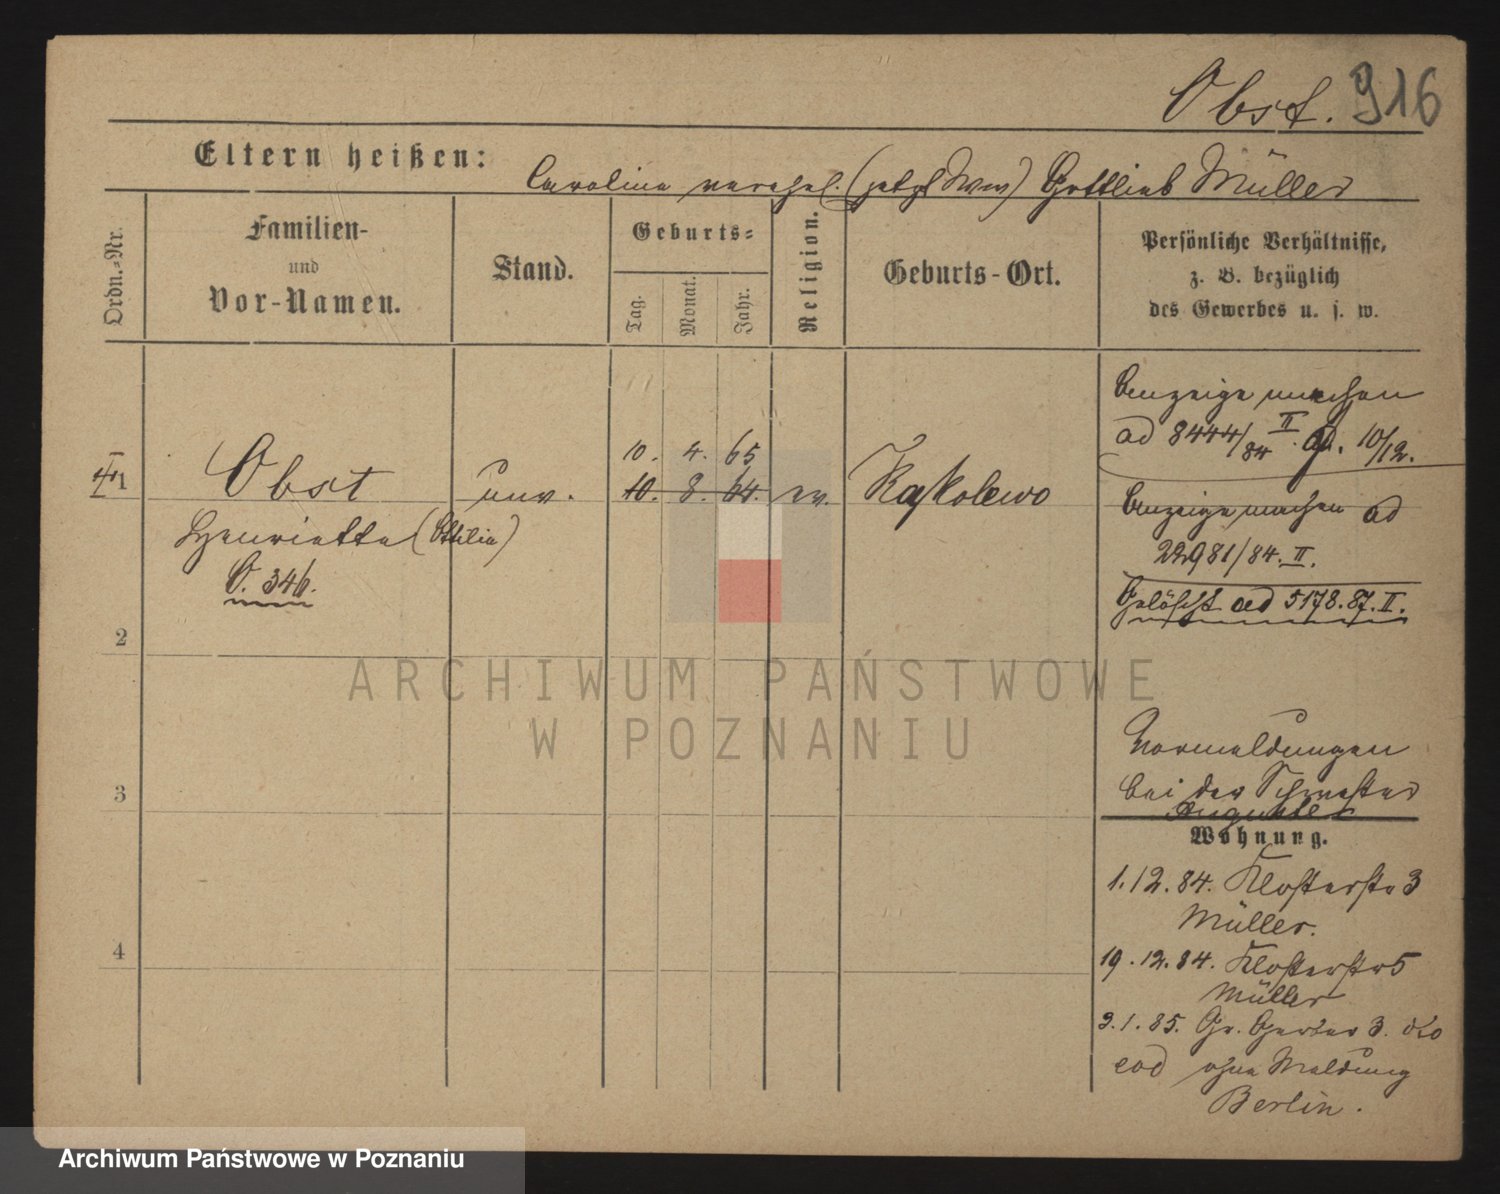 Obst. 916
Eltern heißen: Caroline verehel. (jetzt Wwe) Gottlieb Müller
Ordn.-Nr.
Familien-
und
Vor-Namen.
Stand.
Geburts-
Tag.
Monat.
Jahr.
Religion.
Geburts-Ort.
Persönliche Verhältnisse,
z. B. bezüglich
des Gewerbes u. s. w.
Anzeige machen
ad 8444/84 II. 10/12.
10. 4. 65
1 Obst unv. 10. 8. 64. ev. Kąkolewo
Henriette (Ottilie)
O. 346.
Anzeige machen ad
22981/84. II.
Gelöscht ad 5178.87.II.
2
ARCHIWUM PAŃSTWOWE
W POZNANIU
Vormeldungen
bei der Schwester
3
Auguste
Wohnung.
1.12.84. Klosterstr 3
Müller.
4
19.12.84. Klosterstr 5
Müller
3.1.85. Gr. Gerber 3.
eod ohne Meldung
Berlin.
Archiwum Państwowe w Poznaniu